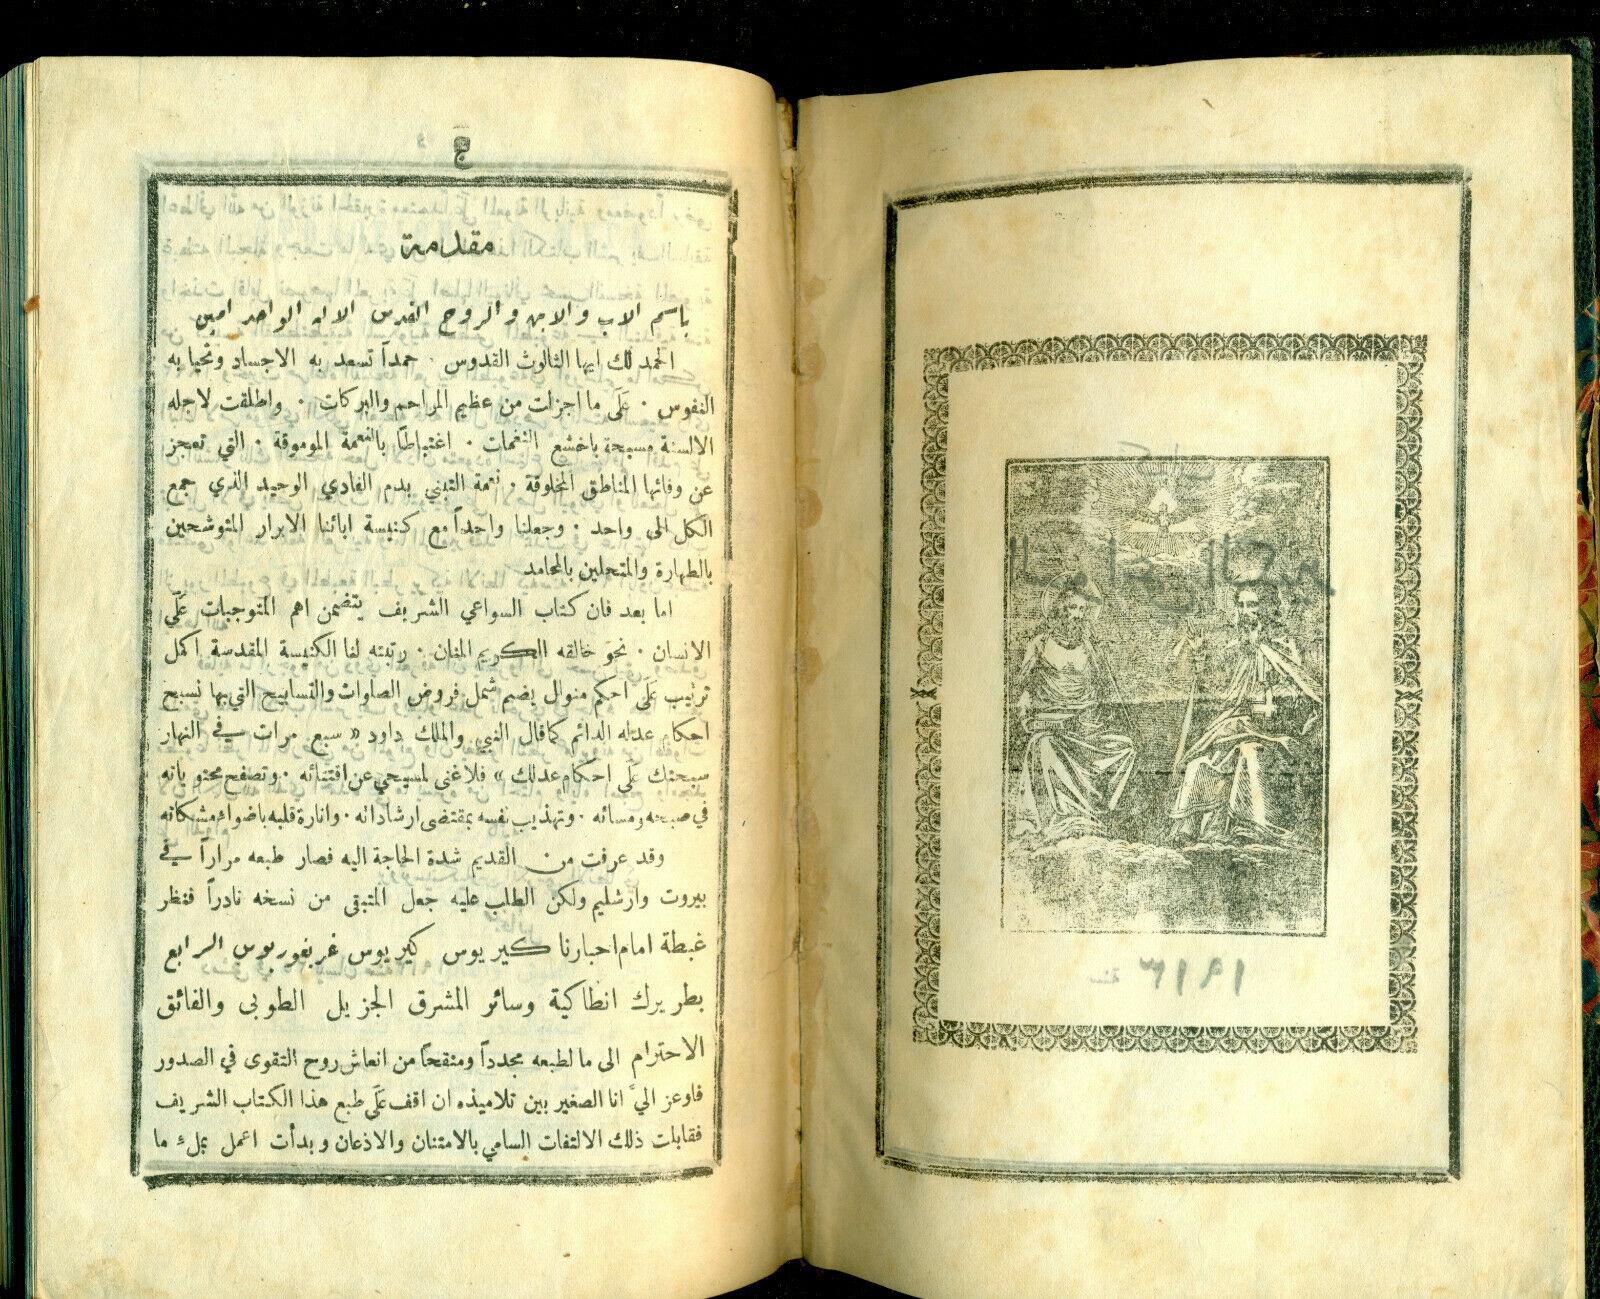 ج
مقدمة
باسم الاب والابن والروح القدس الاله الواحد امين
الحمد لك ايها الثالوث القدوس · حمداً تسعد به الاجساد وتحيا به
النفوس · عَلَى ما اجزلت من عظيم المراحم والبركات · واطلقت لاجله
الالسنة مسبحة باخشع النغمات · اغتباطًا بالنعمة الموموقة · التي تعجز
عن وفائها المناطق المخلوقة · نعمة التبني بدم الفادي الوحيد الذي جمع
الكل الى واحد · وجعلنا واحداً مع كنيسة ابائنا الابرار المتوشحين
بالطهارة والمتحلين بالمحامد
اما بعد فان كتاب السواعي الشريف يتضمن اهم المتوجبات عَلَى
الانسان · نحو خالقه الكريم المنان · رتبته لنا الكنيسة المقدسة اكمل
ترتيب عَلَى احكم منوال يضم شمل فروض الصلوات والتسابيح التي بها نسبح
احكام عدله الدائم كما قال النبي والملك داود « سبع مرات في النهار
سبحتك عَلَى احكام عدلك » فلا غنى لمسيحي عن اقتنائه · وتصفح محتوياته
في صبحه ومسائه · وتهذيب نفسه بمقتضى ارشاداته · وانارة قلبه باضواء مشكاته
وقد عرفت من القديم شدة الحاجة اليه فصار طبعه مراراً في
بيروت واورشليم ولكن الطلب عليه جعل المتبقى من نسخه نادراً فنظر
غبطة امام احبارنا كير يوس كير يوس غريغوريوس الرابع
بطريرك انطاكية وسائر المشرق الجزيل الطوبى والفائق
الاحترام الى ما لطبعه مجدداً ومنقحًا من انعاش روح التقوى في الصدور
فاوعز اليَّ انا الصغير بين تلاميذه ان اقف عَلَى طبع هذا الكتاب الشريف
فقابلت ذلك الالتفات السامي بالامتنان والاذعان وبدأت اعمل بملء ما